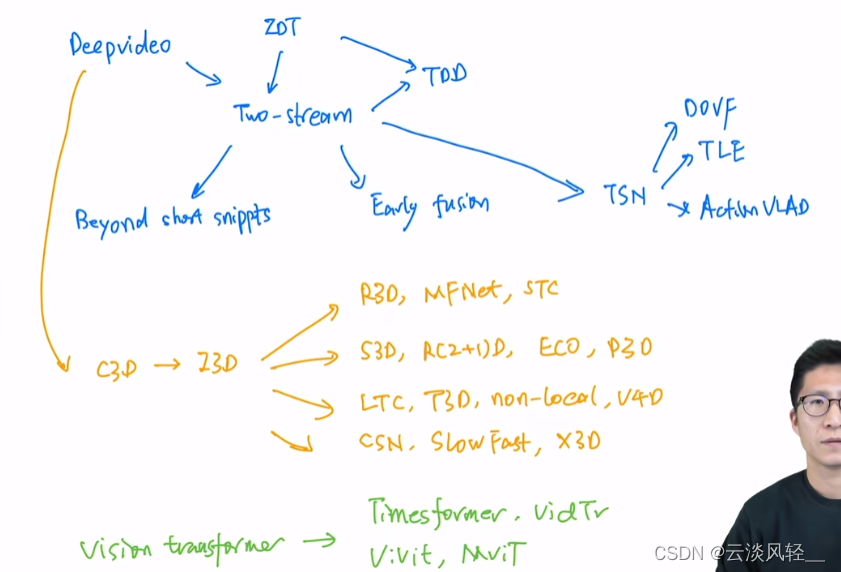 Deepvideo
ZDT
TDD
Two-stream
DOVF
TLE
TSN
ActionVLAD
Beyond short snippts
Early fusion
R3D, MFNet, STC
C3D → I3D
S3D, R(2+1)D, ECO, P3D
LTC, T3D, non-local, V4D
CSN. SlowFast, X3D
Vision transformer →
Timesformer. VidTr
ViVit, MViT
CSDN @云淡风轻__